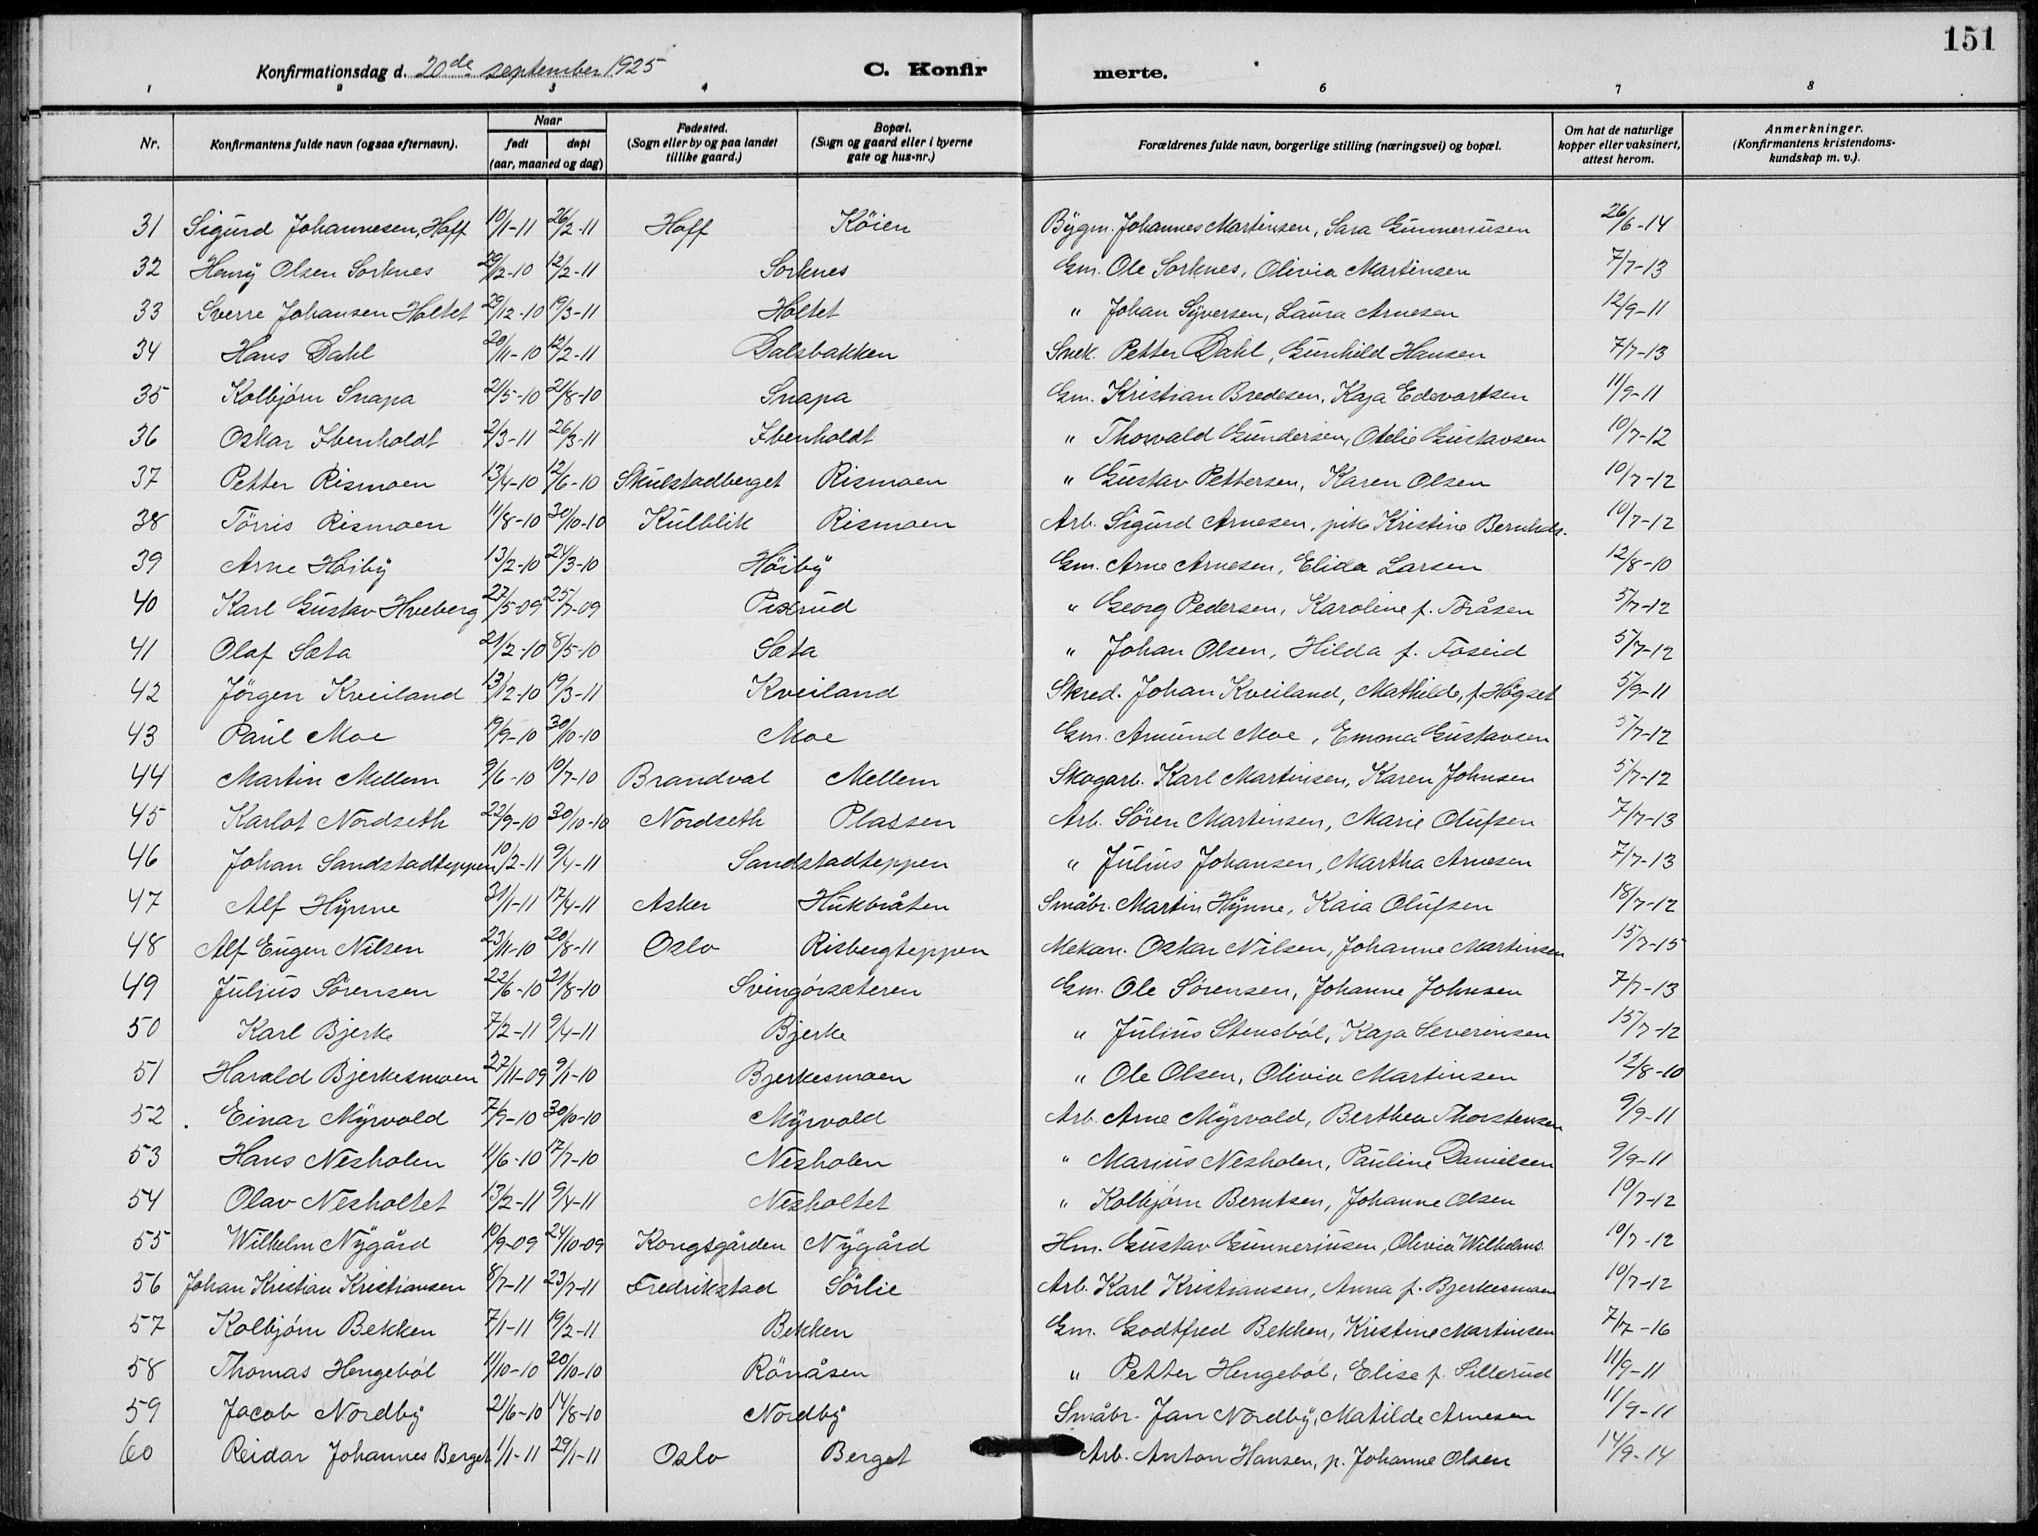 151
Konfirmationsdag d. 20de september 1925 C. Konfir merte.
1 2 3 4 6 7 8
Nr. Konfirmantens fulde navn (ogsaa efternavn). Naar født døpt (aar, maaned og dag) Fødested. (Sogn eller by og paa landet tillike gaard.) Bopæl. (Sogn og gaard eller i byerne gate og hus-nr.) Forældrenes fulde navn, borgerlige stilling (næringsvei) og bopæl. Om hat de naturlige kopper eller vaksinert, attest herom. Anmerkninger. (Konfirmantens kristendoms-kundskap m. v.).
31 Sigurd Johannesen, Hoff 10/1-11 26/2-11 Hoff Köien Bygm. Johannes Martinsen, Sara Gunneriusen 26/6-14
32 Henry Olsen Sorknes 29/12-10 12/2-11 Sorknes Gm. Ole Sorknes, Olivia Martinsen 7/7-13
33 Sverre Johansen Holtet 29/12-10 19/3-11 Holtet " Johan Syversen, Laura Arnesen 12/9-11
34 Hans Dahl 20/11-10 12/2-11 Dalsbakken Snek. Petter Dahl, Gunhild Hansen 7/7-13
35 Kolbjørn Snapa 21/5-10 21/8-10 Snapa Gm. Kristian Bredesen, Kaja Edvartsen 11/9-11
36 Oskar Ibenholdt 2/3-11 26/3-11 Ibenholdt " Thorvald Gundersen, Otelie Gustavsen 10/7-12
37 Petter Rismoen 13/4-10 12/6-10 Skulstadberget Rismoen " Gustav Pettersen, Karen Olsen 10/7-12
38 Törris Rismoen 11/8-10 30/10-10 Kulblik Rismoen Arb. Sigurd Arnesen, pike Kristine Bernhds. 10/7-12
39 Arne Höiby 13/2-10 24/3-10 Höiby Gm. Arne Arnesen, Elida Larsen 12/8-10
40 Karl Gustav Hveberg 27/5-09 25/7-09 Pixrud " Georg Pedersen, Karoline f. Toråsen 5/7-12
41 Olaf Sæta 21/2-10 8/5-10 Sæta " Johan Olsen, Hilda f. Foseid 5/7-12
42 Jörgen Kveiland 13/12-10 19/3-11 Kveiland Skred. Johan Kveiland, Mathilde, f. Högset 5/9-11
43 Paul Moe 19/9-10 30/10-10 Moe Gm. Amund Moe, Emma Gustavsen 5/7-12
44 Martin Mellem 9/6-10 10/7-10 Brandval Mellem Skogarb. Karl Martinsen, Karen Johnsen 5/7-12
45 Karlot Nordseth 22/9-10 30/10-10 Nordseth Plassen Arb. Sören Martinsen, Marie Olufsen 7/7-13
46 Johan Sandstadteppen 10/2-11 9/4-11 Sandstadteppen " Julius Johansen, Martha Arnesen 7/7-13
47 Alf Hynne 31/1-11 17/4-11 Asker Hukbråten Småbr. Martin Hynne, Kaia Olufsen 18/7-12
48 Alf Eugen Nilsen 23/11-10 20/8-11 Oslo Risbergteppen Mekan. Oskar Nilsen, Johanne Martinsen 15/7-15
49 Julius Sörensen 22/6-10 21/8-10 Svingörsæteren Gm. Ole Sörensen, Johanne Johnsen 7/7-13
50 Karl Bjerke 7/2-11 9/4-11 Bjerke " Julius Stensböl, Kaja Severinsen 15/7-12
51 Harald Bjerkesmoen 27/11-09 9/1-10 Bjerkesmoen " Ole Olsen, Olivia Martinsen 12/8-10
52 Einar Myrvold 7/9-10 30/10-10 Myrvold Arb. Arne Myrvold, Berthea Thorstensen 9/9-11
53 Hans Nesholen 11/6-10 17/7-10 Nesholen " Marius Nesholen, Pauline Danielsen 9/9-11
54 Olav Nesholtet 13/2-11 9/4-11 Nesholtet " Kolbjørn Berntsen, Johanne Olsen 10/7-12
55 Wilhelm Nygård 10/9-09 24/10-09 Kongsgården Nygård Hm. Gustav Gunneriusen, Olivia Wilhelms. 10/7-12
56 Johan Kristian Kristiansen 8/7-11 23/7-11 Fredrikstad Sörlie Arb. Karl Kristiansen, Anna f. Bjerkesmoen 10/7-12
57 Kolbjørn Bekken 7/1-11 19/2-11 Bekken Gm. Godtfred Bekken, Kristine Martinsen 7/7-16
58 Thomas Hengeböl 11/10-10 20/10-10 Rönåsen " Petter Hengeböl, Elise f. Sillerud 11/9-11
59 Jacob Nordby 21/6-10 14/8-10 Nordby Småbr. Jan Nordby, Matilde Arnesen 11/9-11
60 Reidar Johannes Berget 1/1-11 29/1-11 Oslo Berget Arb. Anton Hansen, p. Johanne Olsen 14/9-14